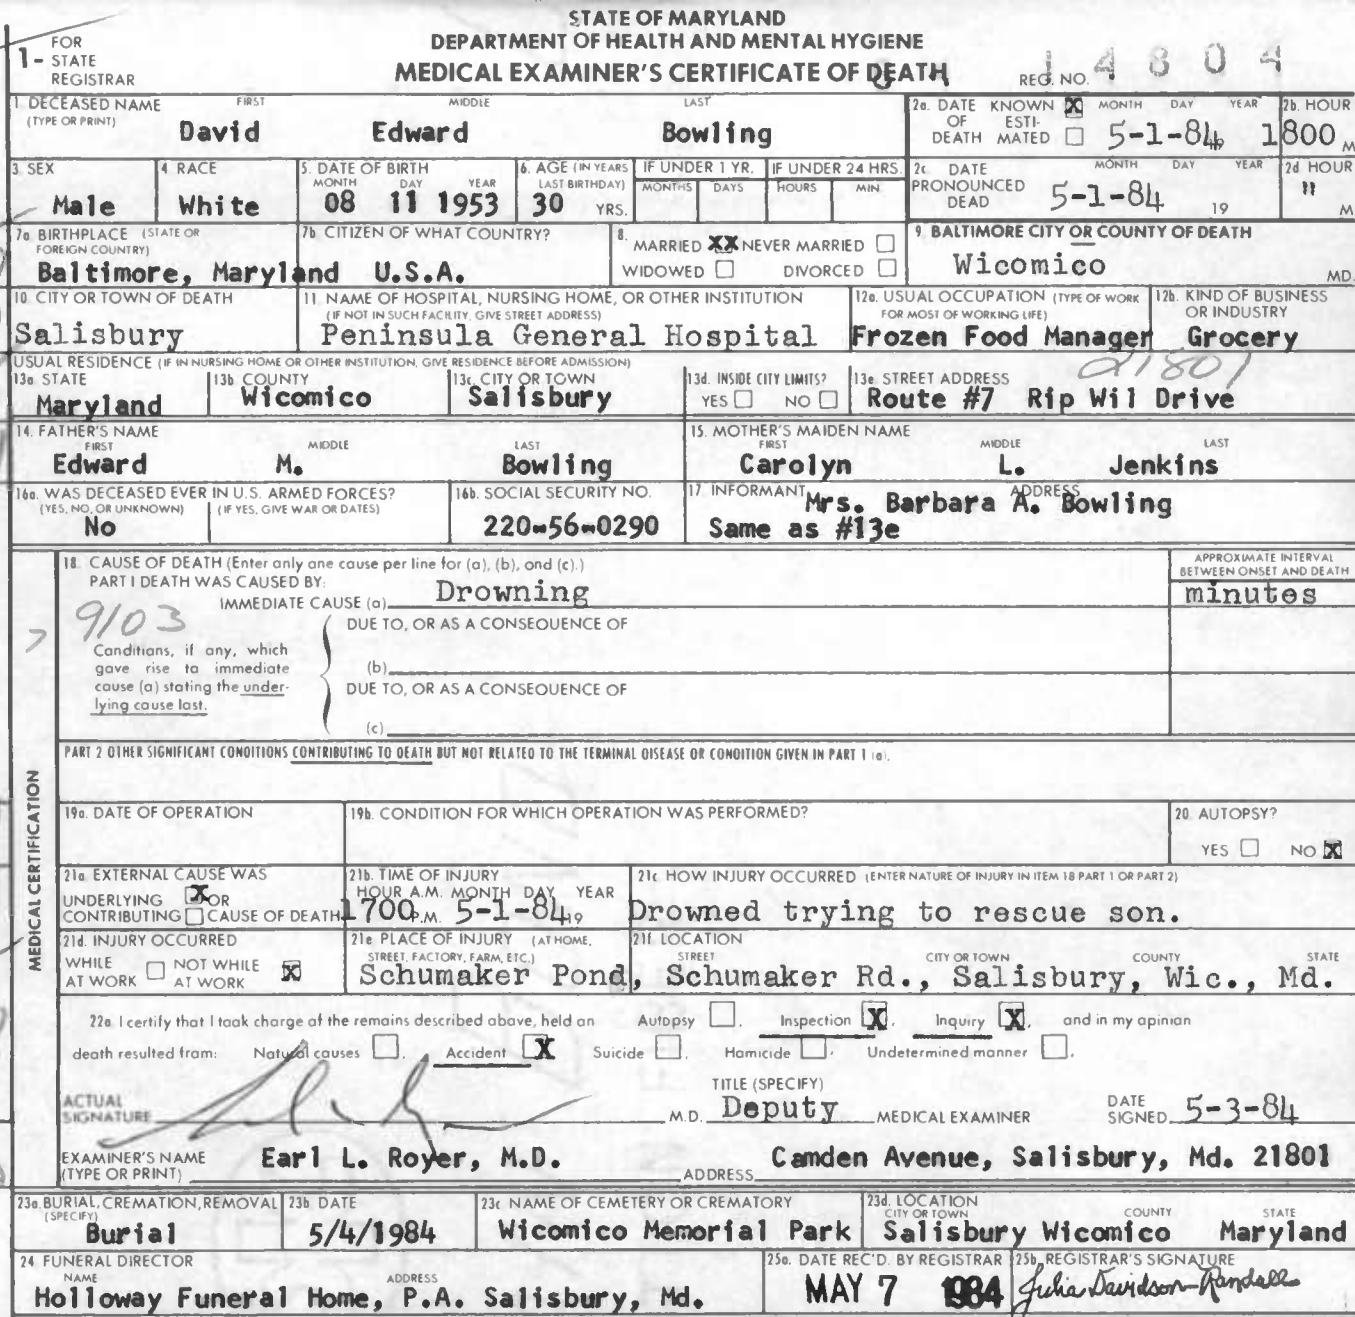 STATE OF MARYLAND
DEPARTMENT OF HEALTH AND MENTAL HYGIENE
MEDICAL EXAMINER'S CERTIFICATE OF DEATH
1- FOR STATE REGISTRAR
REG. NO. 14804
1 DECEASED NAME (TYPE OR PRINT) FIRST MIDDLE LAST
David Edward Bowling
2a. DATE OF DEATH KNOWN X ESTIMATED MONTH DAY YEAR 5-1-84
2b. HOUR 1800 M
3 SEX Male
4 RACE White
5. DATE OF BIRTH MONTH DAY YEAR 08 11 1953
6. AGE (IN YEARS LAST BIRTHDAY) 30 YRS.
IF UNDER 1 YR. MONTHS DAYS
IF UNDER 24 HRS. HOURS MIN
2c DATE PRONOUNCED DEAD MONTH DAY YEAR 5-1-84 19
2d HOUR " M
7a. BIRTHPLACE (STATE OR FOREIGN COUNTRY) Baltimore, Maryland
7b CITIZEN OF WHAT COUNTRY? U.S.A.
8. MARRIED XX NEVER MARRIED
WIDOWED DIVORCED
9. BALTIMORE CITY OR COUNTY OF DEATH
Wicomico MD.
10 CITY OR TOWN OF DEATH
Salisbury
11. NAME OF HOSPITAL, NURSING HOME, OR OTHER INSTITUTION
(IF NOT IN SUCH FACILITY, GIVE STREET ADDRESS)
Peninsula General Hospital
12a. USUAL OCCUPATION (TYPE OF WORK FOR MOST OF WORKING LIFE)
Frozen Food Manager
12b. KIND OF BUSINESS OR INDUSTRY
Grocery
USUAL RESIDENCE (IF IN NURSING HOME OR OTHER INSTITUTION, GIVE RESIDENCE BEFORE ADMISSION)
21801
13a STATE Maryland
13b COUNTY Wicomico
13c. CITY OR TOWN Salisbury
13d. INSIDE CITY LIMITS? YES NO
13e STREET ADDRESS
Route #7 Rip Wil Drive
14. FATHER'S NAME FIRST MIDDLE LAST
Edward M. Bowling
15. MOTHER'S MAIDEN NAME FIRST MIDDLE LAST
Carolyn L. Jenkins
16a. WAS DECEASED EVER IN U.S. ARMED FORCES?
(YES, NO, OR UNKNOWN) (IF YES, GIVE WAR OR DATES)
No
16b. SOCIAL SECURITY NO.
220-56-0290
17 INFORMANT ADDRESS
Mrs. Barbara A. Bowling
Same as #13e
MEDICAL CERTIFICATION
18. CAUSE OF DEATH (Enter only one cause per line for (a), (b), and (c).)
APPROXIMATE INTERVAL BETWEEN ONSET AND DEATH
PART I DEATH WAS CAUSED BY:
IMMEDIATE CAUSE (a) Drowning minutes
9103
DUE TO, OR AS A CONSEQUENCE OF
Conditions, if any, which gave rise to immediate cause (a) stating the underlying cause last.
(b)
DUE TO, OR AS A CONSEQUENCE OF
(c)
PART 2 OTHER SIGNIFICANT CONDITIONS CONTRIBUTING TO DEATH BUT NOT RELATED TO THE TERMINAL DISEASE OR CONDITION GIVEN IN PART 1 (a).
19a. DATE OF OPERATION
19b. CONDITION FOR WHICH OPERATION WAS PERFORMED?
20. AUTOPSY?
YES NO X
21a. EXTERNAL CAUSE WAS
UNDERLYING X OR
CONTRIBUTING CAUSE OF DEATH
21b. TIME OF INJURY
HOUR A.M. MONTH DAY YEAR
1700 P.M. 5-1-84 19
21c HOW INJURY OCCURRED (ENTER NATURE OF INJURY IN ITEM 18 PART 1 OR PART 2)
Drowned trying to rescue son.
21d. INJURY OCCURRED
WHILE AT WORK NOT WHILE AT WORK X
21e PLACE OF INJURY (AT HOME, STREET, FACTORY, FARM, ETC.)
Schumaker Pond,
21f. LOCATION
STREET CITY OR TOWN COUNTY STATE
Schumaker Rd., Salisbury, Wic., Md.
22a I certify that I took charge of the remains described above, held an Autopsy , Inspection X, Inquiry X, and in my opinion
death resulted from: Natural causes , Accident X Suicide , Homicide , Undetermined manner .
ACTUAL SIGNATURE M.D.
TITLE (SPECIFY) Deputy MEDICAL EXAMINER
DATE SIGNED 5-3-84
EXAMINER'S NAME (TYPE OR PRINT) Earl L. Royer, M.D.
ADDRESS Camden Avenue, Salisbury, Md. 21801
23a. BURIAL, CREMATION, REMOVAL (SPECIFY) Burial
23b. DATE 5/4/1984
23c NAME OF CEMETERY OR CREMATORY
Wicomico Memorial Park
23d. LOCATION CITY OR TOWN COUNTY STATE
Salisbury Wicomico Maryland
24 FUNERAL DIRECTOR
NAME ADDRESS
Holloway Funeral Home, P.A. Salisbury, Md.
25a. DATE REC'D. BY REGISTRAR
MAY 7 1984
25b. REGISTRAR'S SIGNATURE
Julia Davidson-Randall